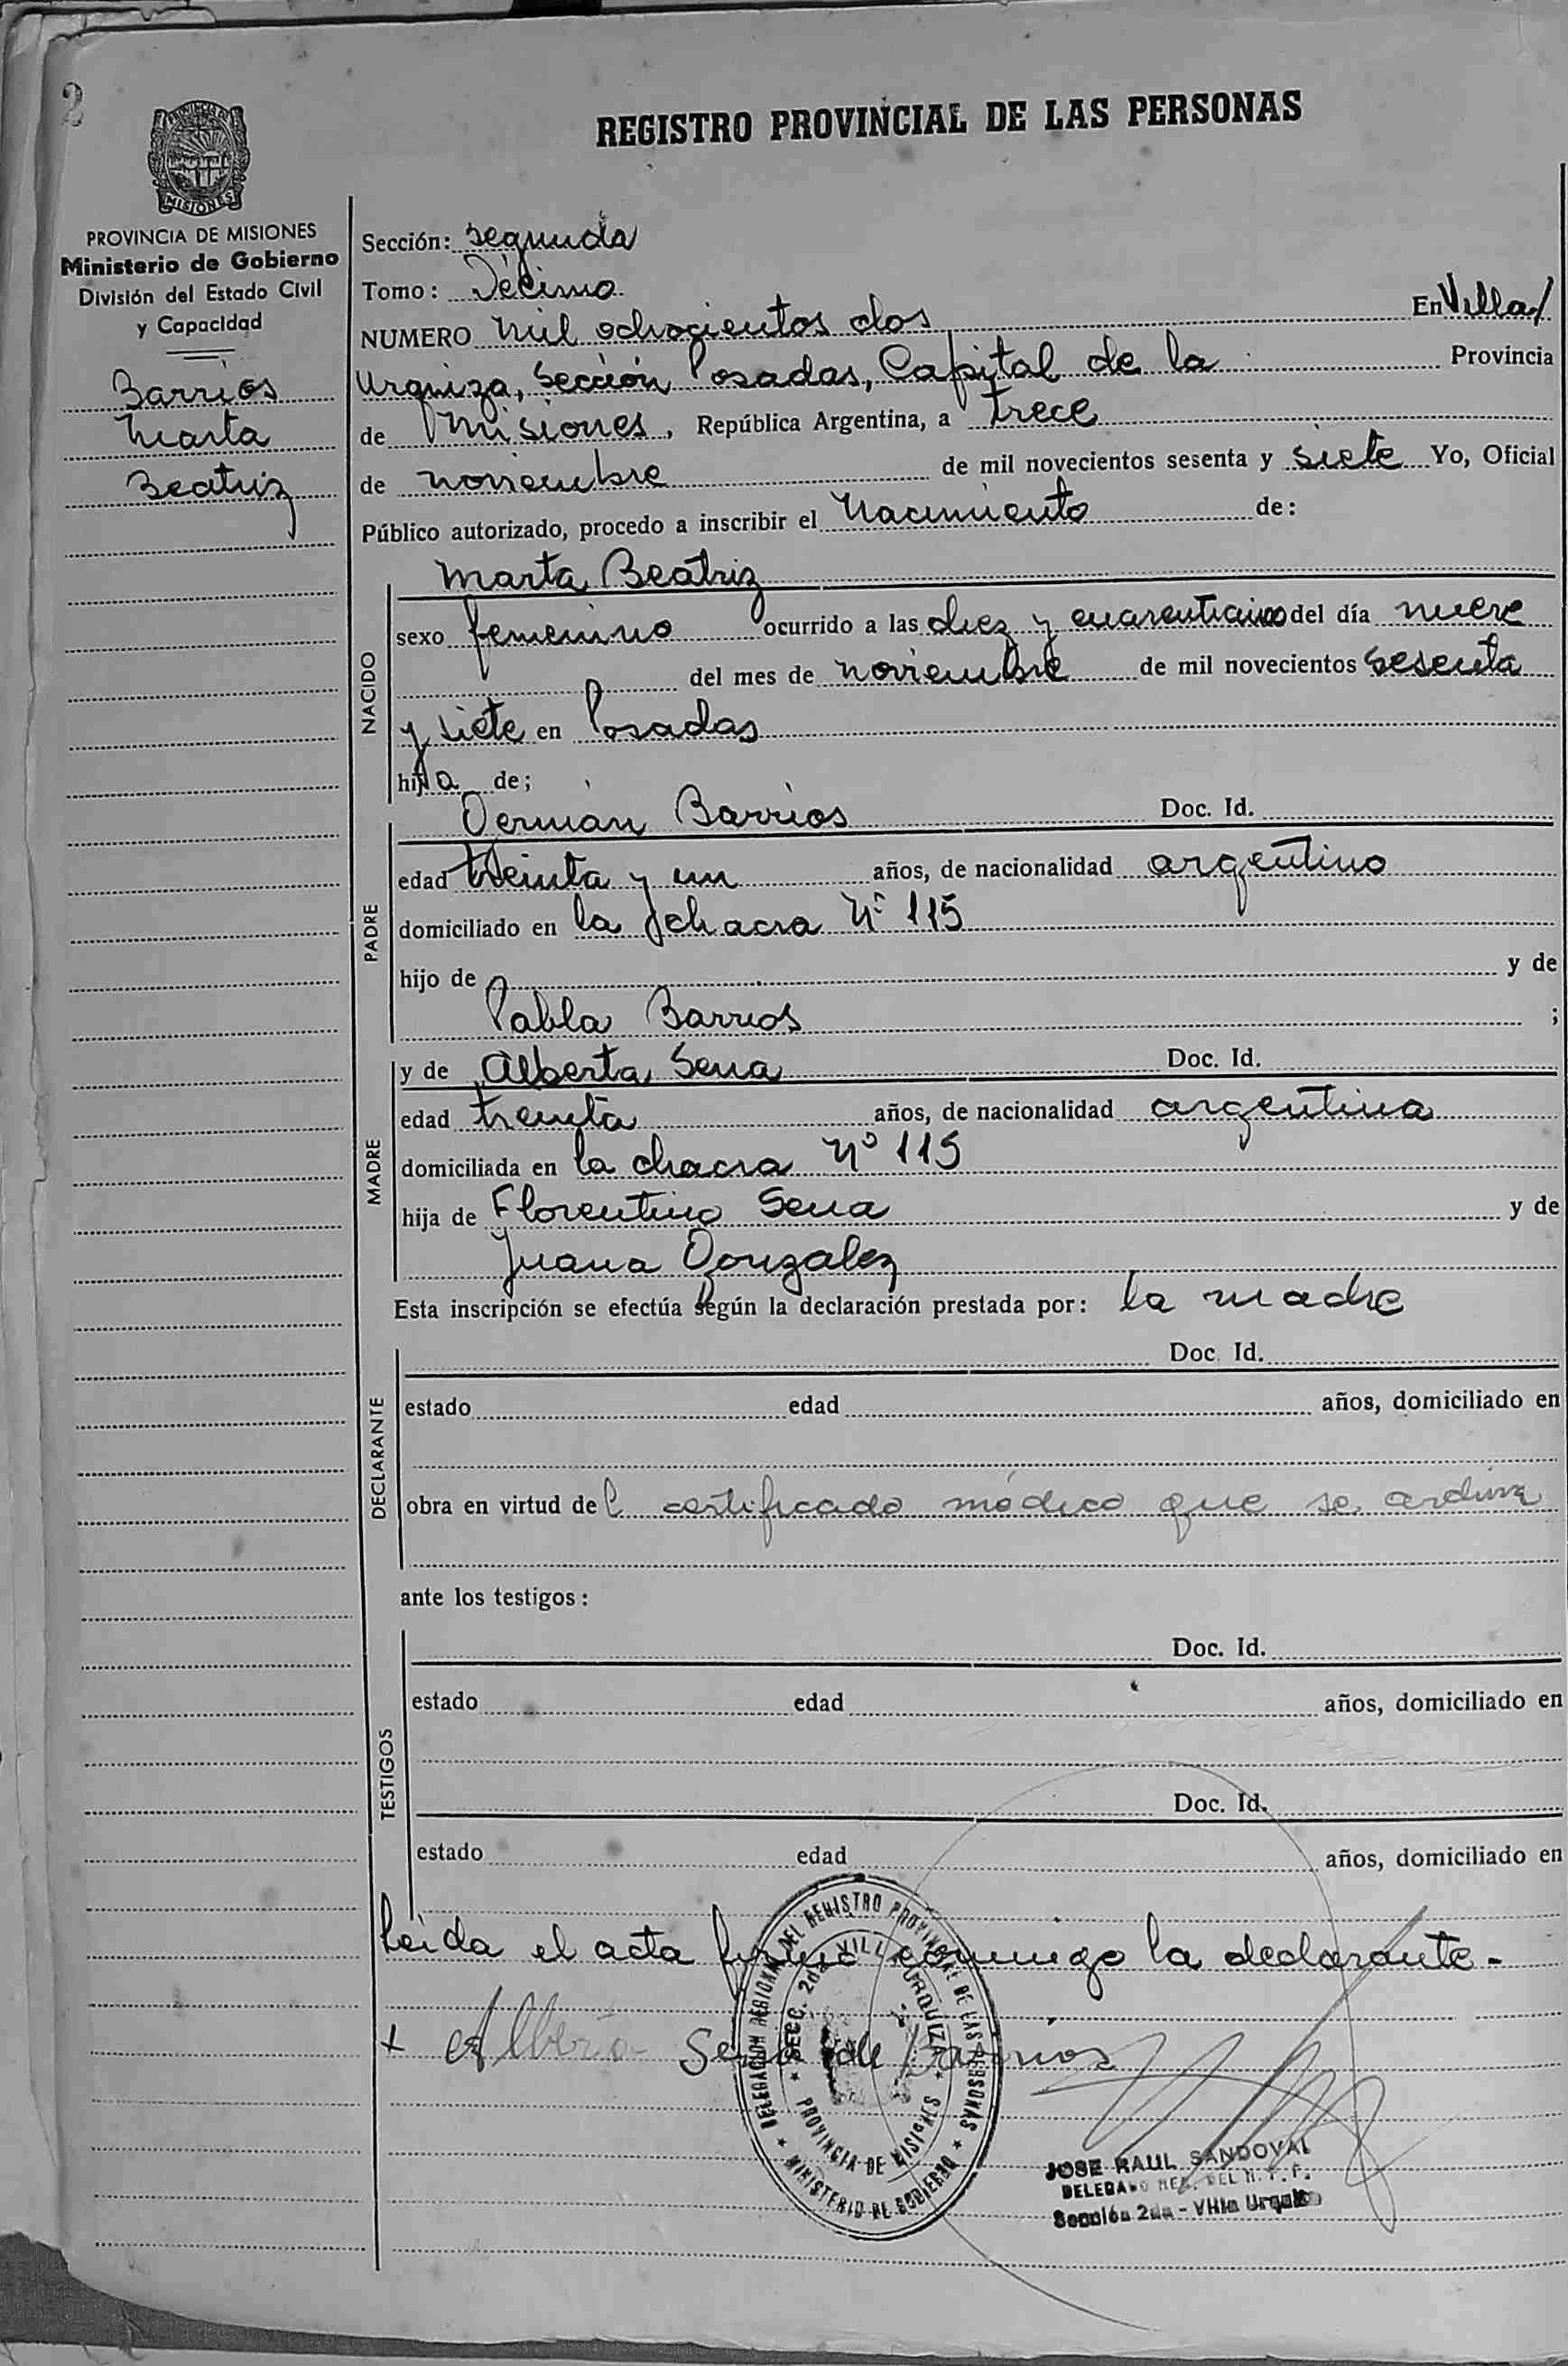 2
REGISTRO PROVINCIAL DE LAS PERSONAS
MISIONES
PROVINCIA DE MISIONES
Ministerio de Gobierno
División del Estado Civil
y Capacidad
Barrios
Marta
Beatriz
Sección: segunda
Tomo: Décimo
NUMERO mil ochocientos dos En Villa
Urquiza, Sección Posadas, Capital de la Provincia
de Misiones, República Argentina, a trece
de noviembre de mil novecientos sesenta y siete Yo, Oficial
Público autorizado, procedo a inscribir el Nacimiento de:
NACIDO
Marta Beatriz
sexo femenino ocurrido a las diez y del día nueve
del mes de noviembre de mil novecientos sesenta
y siete en Posadas
hija de;
PADRE
Germán Barrios Doc. Id.
edad treinta y un años, de nacionalidad argentino
domiciliado en la chacra Nº 115
hijo de y de
Pabla Barrios ;
MADRE
y de Alberta Sena Doc. Id.
edad treinta años, de nacionalidad argentina
domiciliada en la chacra Nº 115
hija de Florentino Sena y de
Juana Gonzalez
Esta inscripción se efectúa según la declaración prestada por: la madre
DECLARANTE
Doc. Id.
estado edad años, domiciliado en
obra en virtud del certificado médico que se
ante los testigos:
TESTIGOS
Doc. Id.
estado edad años, domiciliado en
Doc. Id.
estado edad años, domiciliado en
Leída el acta conmigo la declarante.-
Sena de Barrios
DELEGACION REGIONAL DEL REGISTRO PROVINCIAL DE LAS PERSONAS
SECC. 2da VILLA URQUIZA
PROVINCIA DE MISIONES
MINISTERIO DE GOBIERNO
JOSE RAUL SANDOVAL
DELEGADO
Sección 2da - Villa Urquiza